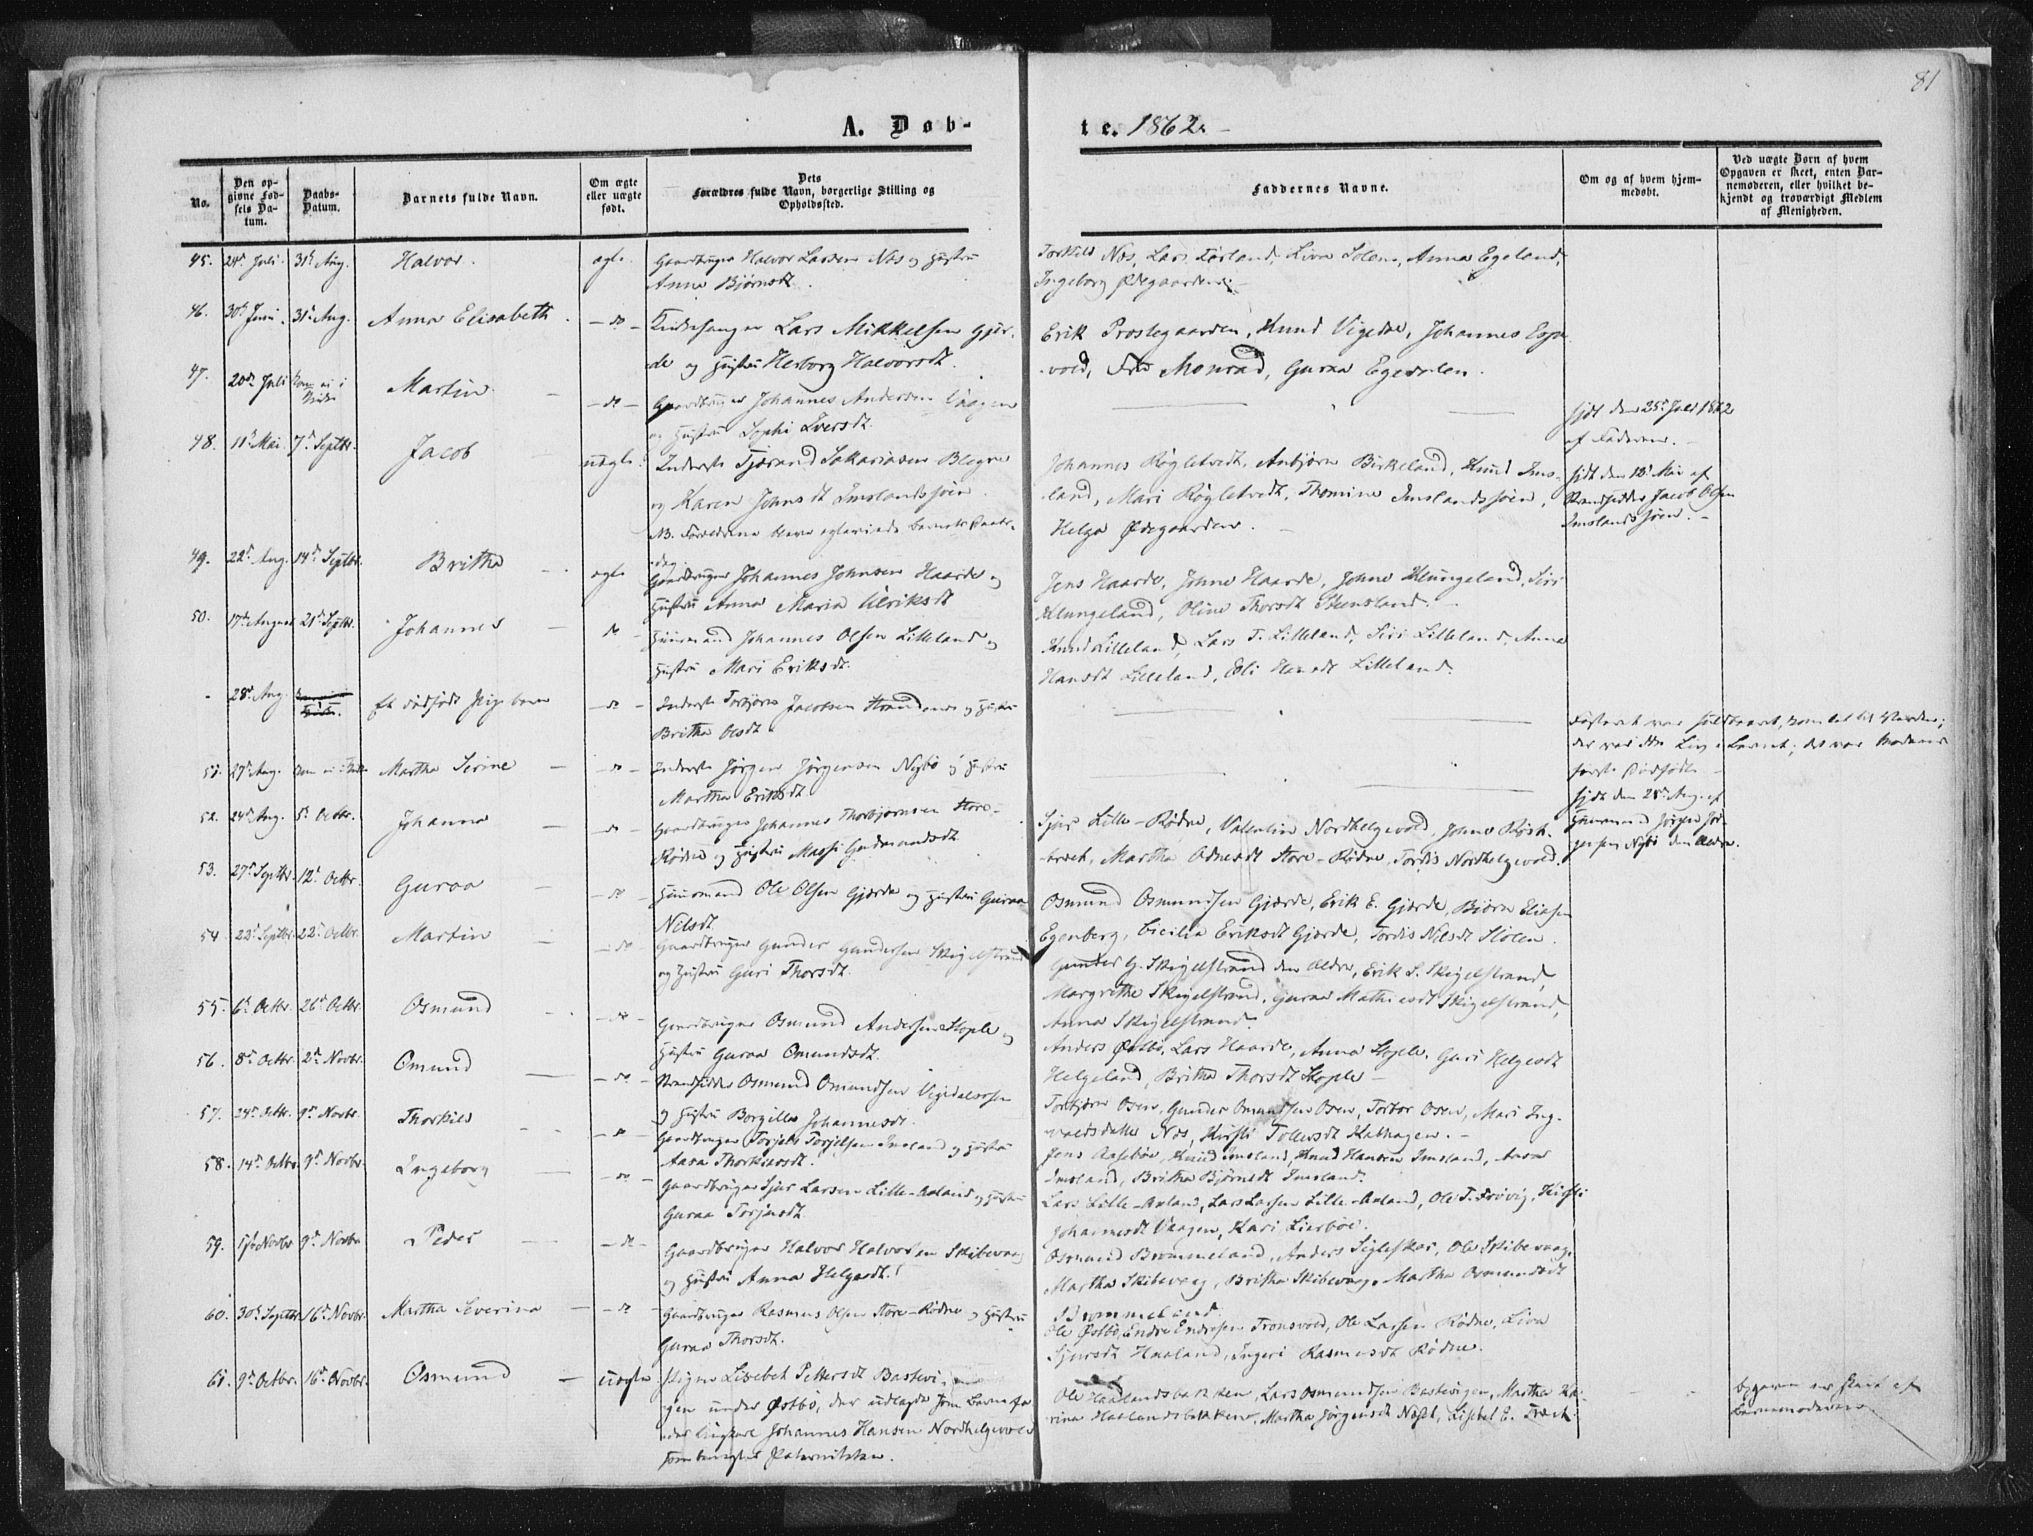 81
A. Døbte. 1862.
No.
Den opgivne Fødsels Datum.
Daabs-Datum.
Barnets fulde Navn.
Om ægte eller uægte født.
Dets Forældres fulde Navn, borgerlige Stilling og Opholdssted.
Faddernes Navne.
Om og af hvem hjemmedøbt.
Ved uægte Børn af hvem Opgaven er skeet, enten Barnemoderen, eller hvilket bekjendt og troværdigt Medlem af Menigheden.
45. 24d Juli 31d Aug. Halvor. ægte. Gaardbruger Halvor Larsen Næs og Hustru
Anna Bjørnsdt.
Torkild Næs, Lars Førland, Anna Egeland,
Ingeborg Ødegaarden.
46. 30d Juni. 31d Aug. Anna Elisabeth. do Lars Mikkelsen Gjær-
de og Hustru Herborg Halvorsdt.
Erik Præstegaarden, Knud Vigedal, Johannes Espe-
vold, Monrad, Guroa Egedalen.
47. 20de Juli Martin do Gaardbruger Johannes Andersen Vaagen
og Hustru Sophi Iversdt.
hjdt den 25d Juli 1862
af Faderen.
48. 11d Mai. 7d Septbr. Jacob uægte. Inderst Tjærand Sakariasen
og Karen Johnsdt Imslandssjøen.
NB. Forældrene barnets Daabs-
dag.
Johannes Røgletvedt, Anbjørn Birkeland, Knud Ims-
land, Mari Røgletvedt, Thomine Imslandssjøen,
Helga Ødegaarden.
hjdt den 12d Mai af
Strandsidder Jacob Olsen
Imslandssjøen.
49. 22d Aug. 14d Septbr. Britha ægte Gaardbruger Johannes Johnsen Haarde og
Hustru Anna Maria Ulriksdt
Jens Haarde, Johne Haarde, Johne Klungeland, Siri
Klungeland, Oline Thorsdt Steensland.
50. 17de August 21d Septbr. Johannes do Huusmand Johannes Olsen Lilleland og
Hustru Mari Eriksdt.
Knud Lilleland, Lars T. Lilleland, Siri Lilleland, Anna
Hansdt Lilleland, Eli Hansdt Lilleland.
28d Aug. Et dødfødt Pigebarn do Inderst Torbjørn Jacobsen og Hustru
Britha Olsdt.
Fosteret var fuldbaaret, kom det til Verden;
der var ikke Liv i Barnet; det var Moderens
første Dødfødte
51. 27d Aug. Martha Serine do Inderst Jørgen Jørgensen Nybø og Hustru
Martha Eriksdt
hjdt den 28d Aug. af
Huusmand Jørgen Jør-
gensen Nybø den Ældre.
52. 24d Aug. 5d Octbr. Johanna do Gaardbruger Johannes Thorbjørnsen Store-
Rødne og Hustru Massi Gudmundsdt
Sjur Lille-Rødne, Valentin Nordhelgevold, Johne
Martha Odnesdt Store-Rødne, Tordis Nordhelgevold.
53. 27d Septbr. 12d Octbr. Guroa do Huusmand Ole Olsen Gjærde og Hustru Guroa
Nilsdt.
Osmund Osmundsen Gjærde, Erik E. Gjærde, Bjørn Eliasen
Egenberg, Cicilia Eriksdt Gjærde, Tordis Nilsdt Stølen.
54. 22d Septbr. 22d Octbr. Martin do Gaardbruger Gunder Gundersen Skigelstrand
og Hustru Guri Thorsdt.
Gunder G. Skigelstrand den Ældre, Erik S. Skigelstrand,
Margrethe Skigelstrand, Guroa Mathiesdt Skigelstrand,
Anna Skigelstrand.
55. 6d Octbr. 26d Octbr. Osmund do Gaardbruger Osmund Andersen Hople og
Hustru Guroa Omundsdt.
Anders Østbø, Lars Haarde, Anna Hople, Guri Helgesdt
Helgeland, Britha Thorsdt Hople
56. 8d Octbr. 2d Novbr. Omund do Strandsidder Osmund Omundsen Vigedalsosen
og Hustru Borgilla Johannesdt.
Torbjørn Osen, Gunder Omundsen Osen, Torbor Osen, Mari Ing-
valdsdatter Næs, Kirsti Tollevsdt Kathagen.
57. 24d Octbr. 9d Novbr. Thorkild do Gaardbruger Torjels Torjelsen Imsland og Hustru
Aasa Thorkildsdt.
Jens Aasebøe, Knud Imsland, Knud Hansen Imsland,
Imsland, Britha Bjørnsdt Imsland.
58. 14d Octbr. 9d Novbr. Ingeborg do Gaardbruger Sjur Larsen Lille-Øvland og Hustru
Guroa Torjusdt.
Lars Lille-Øvland, Lars Larsen Lille-Øvland, Ole T. Frøvig, Kirsti
Johannesdt Vaagen, Kari Lierbøe.
59. Novbr 9d Novbr Peder do Gaardbruger Halvor Halvorsen Skibevaag
og Hustru Anna Helgesdt.
Osmund Brommeland, Anders Sigleskar, Ole Skibevaag,
Martha Skibevaag, Britha Skibevaag, Martha Osmundsdt
Brommeland.
60. 30d Septbr 16d Novbr. Martha Severina do Gaardbruger Rasmus Olsen Store-Rødne og Hustru
Guroa Thorsdt.
Ole Østbø, Endre Endresen Tronsvold, Ole Larsen Rødne, Liva
Sjursdt Haaland, Ingeri Rasmusdt Rødne.
61. 9d Octbr. 16d Novbr. Osmund uægte Pigen Lisebet Pettersdt Bastevi-
gen under Østbø, der udlagde som Barnefa-
der Ungkarl Johannes Hansen Nordhelgevold
Paterniteten.
Ole Haalandsbakken, Lars Osmundsen Bastevigen, Martha Ka-
rina Haalandsbakken, Martha Jørgensdt Næset, Lisebet E.
Opgaven er skeet af
Barnemoderen